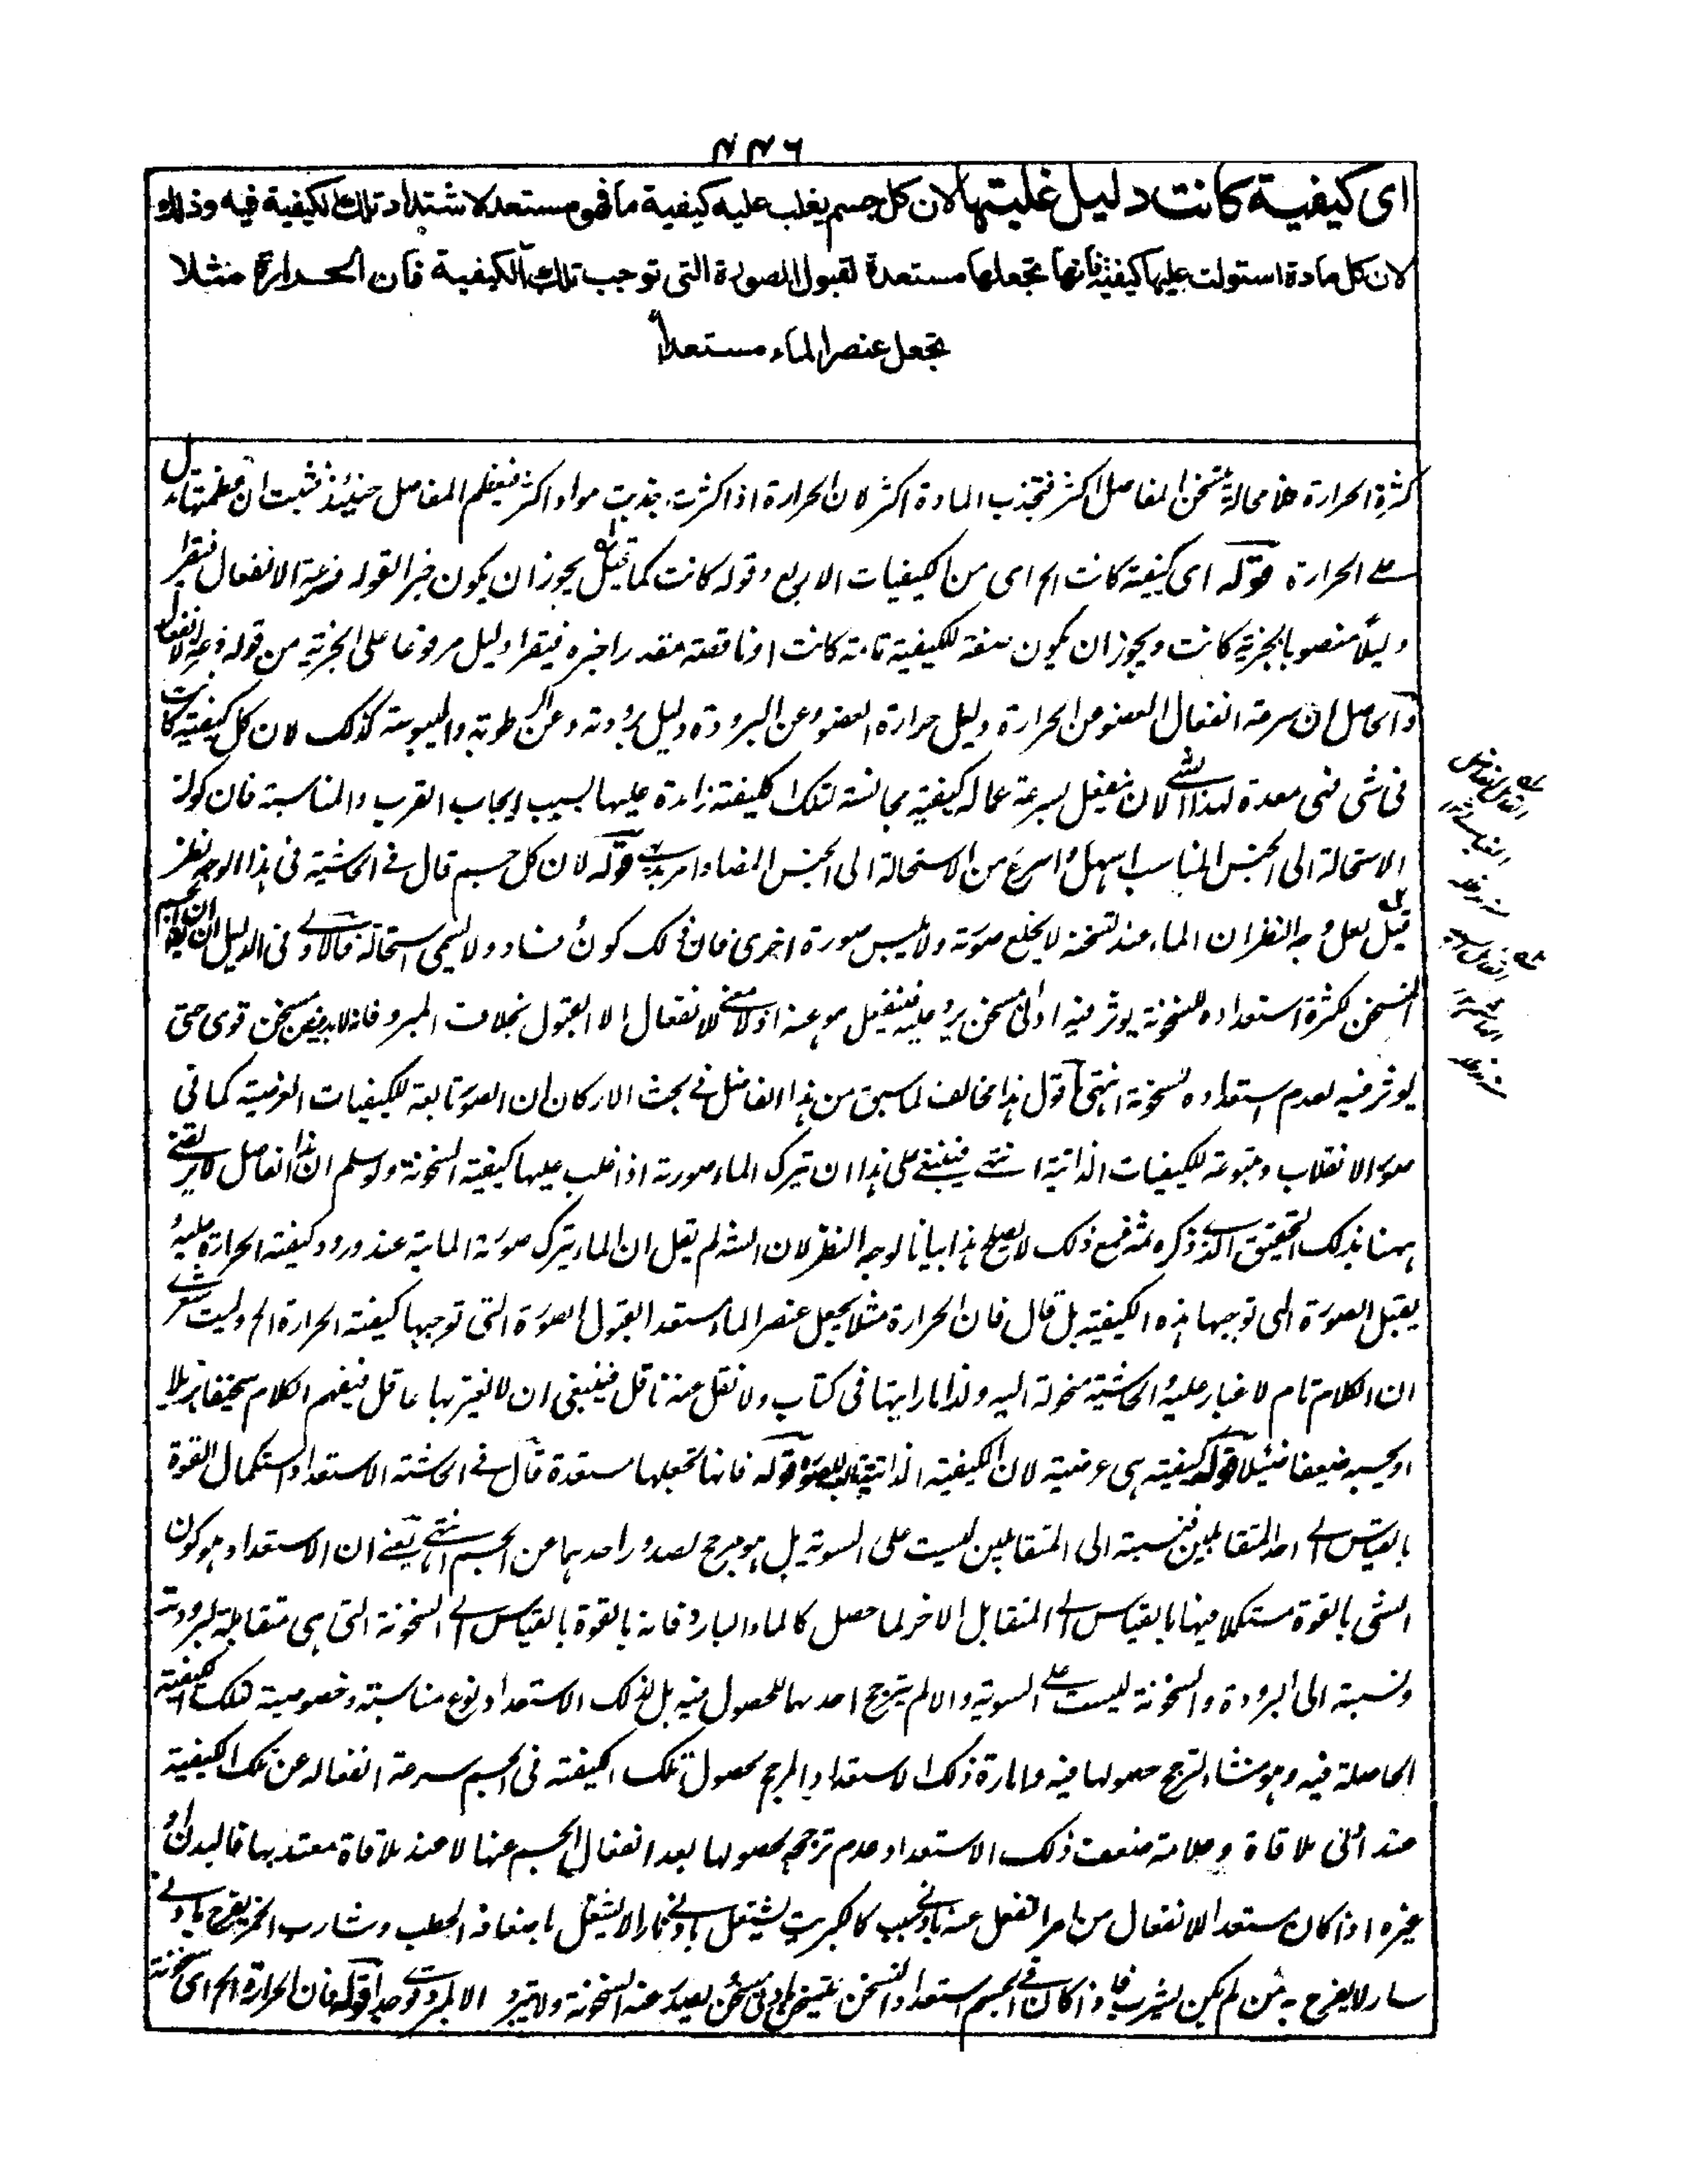 ۴۴۶
ای کیفیة کانت دلیل غلبتها لان کل جسم یغلب علیه کیفیة ما فهو مستعد لاشتداد تلك الکیفیة فیه وذلك
لان کل مادة استولت علیها کیفیة فانها تجعلها مستعدة لقبول الصورة التی توجب تلك الکیفیة فان الحرارة مثلا
تجعل عنصر الماء مستعدا
کثرة الحرارة فلا محالة یتسخن المفاصل اکثر فتجذب المادة اکثر لان الحرارة اذا کثرت جذبت مواد اکثر فیعظم المفاصل حینئذ فثبت ان عظمتها تدل
علے الحرارة قوله ای کیفیة کانت الخ ای من الکیفیات الاربع وقوله کانت کما قیل یجوز ان یکون خبرا لقوله سرعة الانفعال فیقرا
دلیلا منصوبا بخبریة کانت ویجوز ان یکون صفة للکیفیة تامة کانت او ناقصة مقدرا خبره فیقرا دلیل مرفوعا علی الخبریة من قوله سرعة الانفعال
والحاصل ان سرعة انفعال العضو من الحرارة دلیل حرارة العضو وعن البرودة دلیل برودته وعن الرطوبة والیبوسة کذلک لان کل کیفیة کانت
فی شی فهی معدة لهذا الشے لان ینفعل بسرعة عما له کیفیة مجانسة لتلک الکیفیة زائدة علیها بسبب ایجاب القرب والمناسبة فان کون
الاستحالة الی الجنس المناسب اسهل واسرع من الاستحالة الی الجنس المضاد امر بدیهے قوله لان کل جسم قال فے الحاشیة فی هذا الوجه نظر
قیل لعل وجه النظر ان الماء عند تسخنه لا یخلع صورته ولا یلبس صورة اخری فان ذلک کون وفساد ولا یسمی استحالة فالاولے فی الدلیل ان یقال ان الجسم
المتسخن لکثرة استعداده للسخونة یوثر فیه ادنی مسخن یرد علیه فینفعل هو عنه اذ لا معنے للانفعال الا القبول بخلاف المبرد فانه لابد فیه من مسخن قوی حتی
یوثر فیه لعدم استعداده للسخونة انتهی اقول هذا مخالف لما سبق من هذا الفاضل فے بحث الارکان ان الصور تابعة للکیفیات العرضیة کما فی
صور الانقلاب ومتبوعة للکیفیات الذاتیة انتهے فینبغے علی هذا ان یترک الماء صورته اذا غلب علیها کیفیة السخونة ولو سلم ان هذا الفاضل لا یرتضے
ههنا بذلک التحقیق الذے ذکره ثمه فمع ذلک لا یصلح هذا بیانا لوجه النظر لان الشه لم یقل ان الماء یترک صورته المائیة عند ورود کیفیة الحرارة علیه و
یقبل الصورة التی توجبها هذه الکیفیة بل قال فان الحرارة مثلا یجعل عنصر الماء مستعدا لقبول الصورة التی توجبها کیفیة الحرارة الخ ولیت شعرے
ان الکلام تام لا غبار علیه والحاشیة منحولة الیه ولذا ما رایتها فی کتاب ولا نقل عنه ناقل فینبغی ان لا یغتر بها عاقل فیفهم الکلام سخیفا هزیلا
او یحسبه ضعیفا ضئیلا قوله کیفیة ای عرضیة لان الکیفیة الذاتیة تابعة للصورة قوله فانها تجعلها مستعدة قال فے الحاشیة الاستعداد استکمال القوة
بالقیاس الے احد المتقابلین فنسبته الی المتقابلین لیست علی السویة بل هو مرجح لصدور احدهما عن الجسم انتهے یعنے ان الاستعداد هو کون
الشی بالقوة مستکملا فیها بالقیاس الے المتقابل الاخر لما حصل کالماء البارد فانه بالقوة بالقیاس الے السخونة التی هی متقابلة لبرودته
ونسبته الی البرودة والسخونة لیست علے السویة والا لم یترجح احدهما للحصول فیه بل لذلک الاستعداد نوع مناسبة وخصوصیة لتلک الکیفیة
الحاصلة فیه وهو منشاء لترجح حصولها فیه وامارة ذلک الاستعداد المرجح لحصول تلک الکیفیة فی الجسم سرعة انفعاله عن تلک الکیفیة
عند ادنی ملاقاة وعلامة ضعف ذلک الاستعداد عدم ترجح لحصولها بعد انفعال الجسم عنها لا عند ملاقاة معتد بها فالبدن او
غیره اذا کان مستعدا للانفعال من امر انفعل عنه بادنے سبب کالکبریت یشتعل بادنے نار لا یشتعل باضعافه الحطب وشارب الخمر یفرح بادنے
سار لا یفرح به من لم یکن یشرب فاذا کان فے الجسم استعداد التسخن یتسخن بادنی مسخن بعید عنه السخونة ولا یتبرد الا لمبرد قوی جدا قوله فان الحرارة الخ ای سخونة